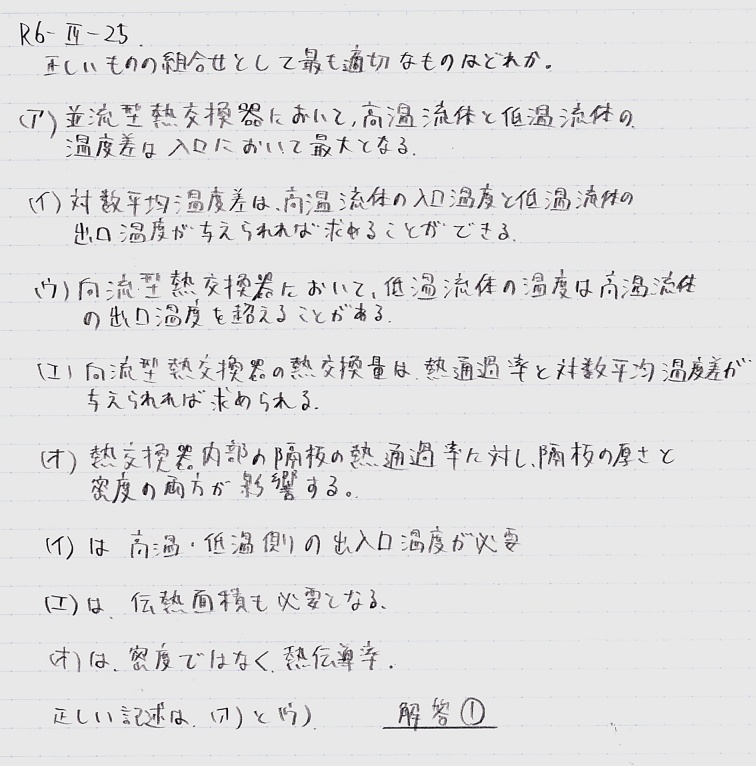 R6-Ⅲ-25.
正しいものの組合せとして最も適切なものはどれか。
(ア) 並流型熱交換器において,高温流体と低温流体の
温度差は入口において最大となる.
(イ) 対数平均温度差は、高温流体の入口温度と低温流体の
出口温度が与えられれば求めることができる.
(ウ) 向流型熱交換器において、低温流体の温度は高温流体
の出口温度を超えることがある.
(エ) 向流型熱交換器の熱交換量は、熱通過率と対数平均温度差が
与えられれば求められる.
(オ) 熱交換器内部の隔板の熱通過率に対し、隔板の厚さと
密度の両方が影響する。
(イ) は 高温・低温側の出入口温度が必要
(エ) は、伝熱面積も必要となる.
(オ) は、密度ではなく、熱伝導率.
正しい記述は、(ア) と (ウ) 解答①